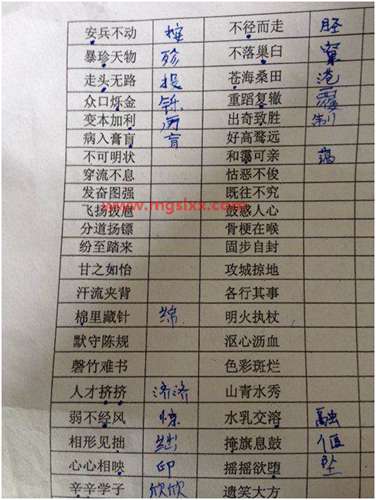 安兵不动 按 不径而走 胫
暴珍天物 殄 不落巢臼 窠
走头无路 投 苍海桑田 沧
众口烁金 铄 重蹈复辙 覆
变本加利 厉 出奇致胜 制
病入膏肓 肓 好高鹜远
不可明状 和霭可亲 蔼
穿流不息 怙恶不俊
发奋图强 既往不究
飞扬拔扈 鼓惑人心
分道扬镖 骨梗在喉
纷至踏来 固步自封
甘之如怡 攻城掠地
汗流夹背 各行其事
棉里藏针 绵 明火执杖
默守陈规 沤心沥血
磬竹难书 色彩斑烂
人才挤挤 济济 山青水秀
弱不经风 水乳交溶 融
相形见拙 绌 掩旗息鼓 偃
心心相映 印 摇摇欲堕 坠
辛辛学子 欣欣 遗笑大方
www.mgslxx.com